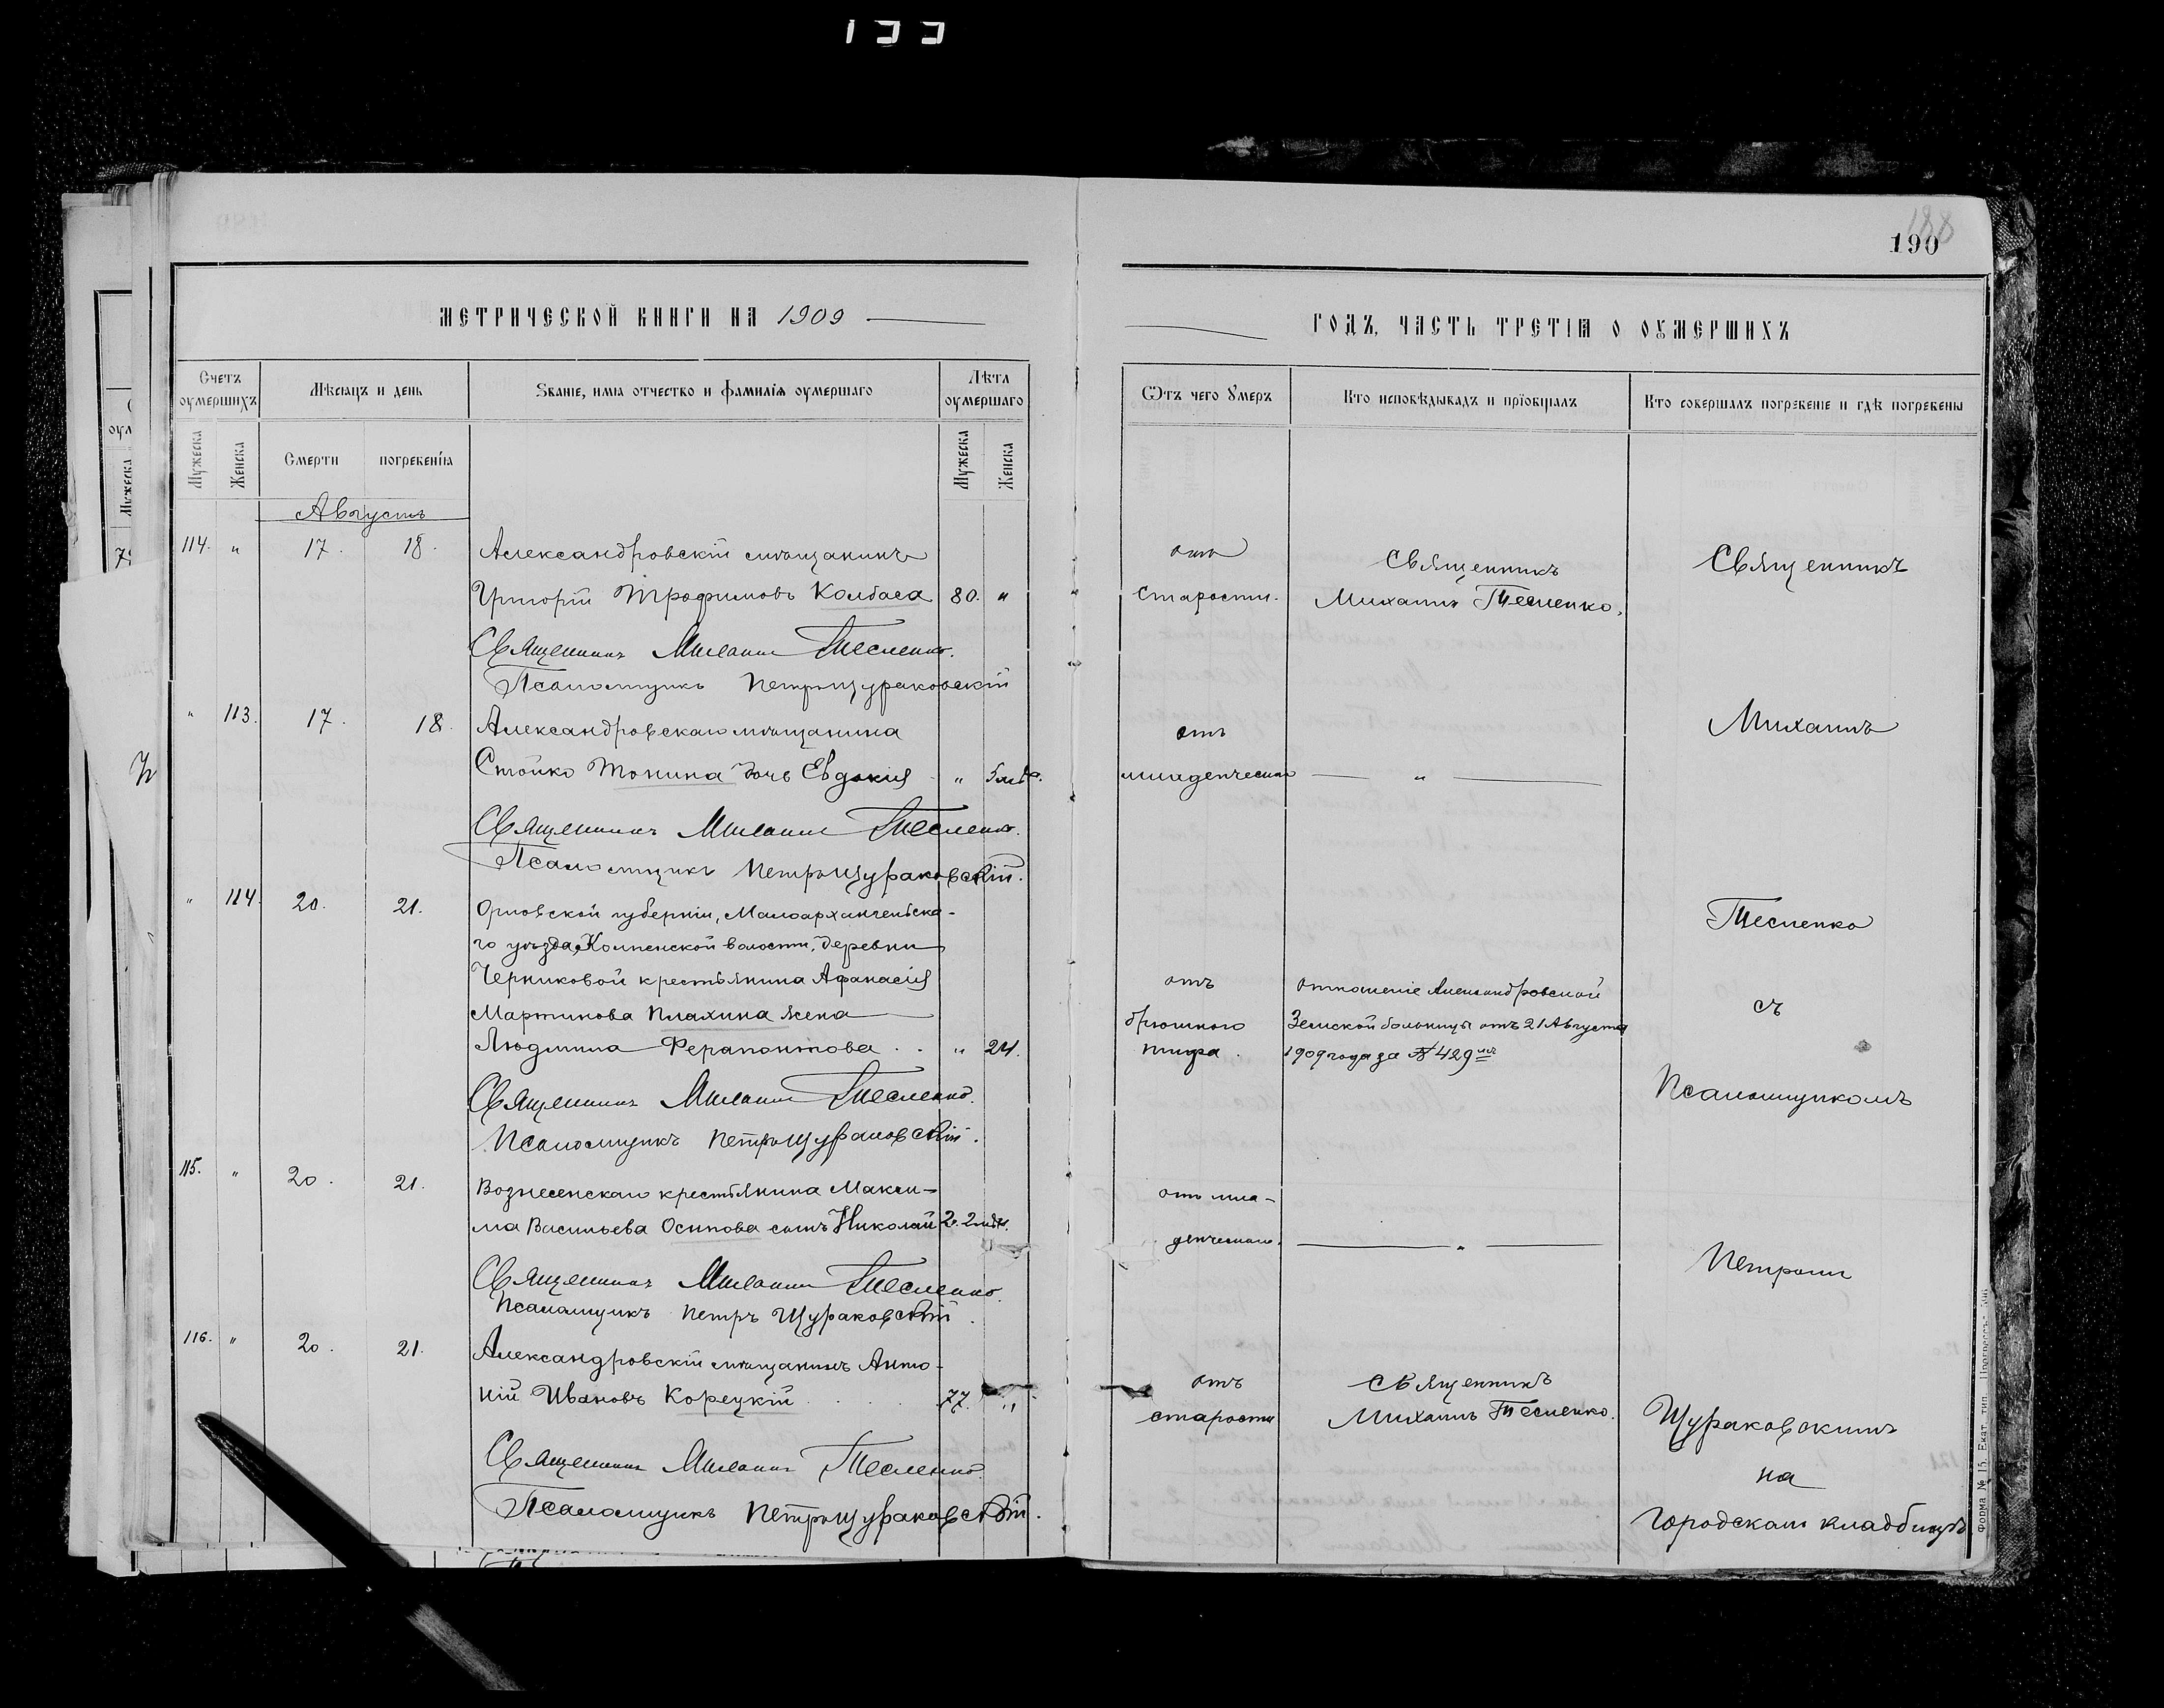 133
188
190
МЕТРИЧЕСКОЙ КНИГИ НА 1909
ГОДЪ, ЧАСТЬ ТРЕТІѦ О ОУМЕРШИХЪ
Счетъ оумершихъ
Мѣсѧцъ и день
Званіе, имѧ отчество и фамиліѧ оумершаго
Лѣта оумершаго
Ѿтъ чего Умеръ
Кто исповѣдывалъ и прїобщалъ
Кто совершалъ погребеніе и гдѣ погребены
Мужеска
Женска
Смерти
погребенїѧ
Мужеска
Женска
Августъ
114. " 17. 18. Александровскій мѣщанинъ
Григорій Трофимовъ Колбаса 80. "
Священникъ Михаилъ Тесленко.
Псаломщикъ Петръ Щураковскій
" 113. 17. 18. Александровскаго мѣщанина
Стойко Тонина дочь Евдокія " 5 мѣс.
Священникъ Михаилъ Тесленко.
Псаломщикъ Петръ Щураковскій.
" 114. 20. 21. Орловской губерніи, Малоархангельска-
го уѣзда, Колпенской волости, деревни
Черниковой крестьянина Афанасія
Мартинова Плахина жена
Людмила Ферапонтова . . " 24.
Священникъ Михаилъ Тесленко.
Псаломщикъ Петръ Щураковскій.
115. " 20. 21. Вознесенскаго крестьянина Макси-
ма Васильева Осипова сынъ Николай
Священникъ Михаилъ Тесленко.
Псаломщикъ Петръ Щураковскій.
116. " 20. 21. Александровскій мѣщанинъ Анто-
ній Ивановъ Корецкій 77. "
Священникъ Михаилъ Тесленко.
Псаломщикъ Петръ Щураковскій.
отъ
старости.
отъ
младенческой
отъ
брюшного
тифа.
отъ мла-
денческаго.
отъ
старости
Священникъ
Михаилъ Тесленко.
"
отношеніе Александровской
Земской больницы отъ 21 Августа
1909 года за № 429
"
Священникъ
Михаилъ Тесленко.
Священникъ
Михаилъ
Тесленко
съ
Псаломщикомъ
Петромъ
Щураковскимъ
на
Городскомъ кладбищѣ
Форма № 15. Екат. тип.